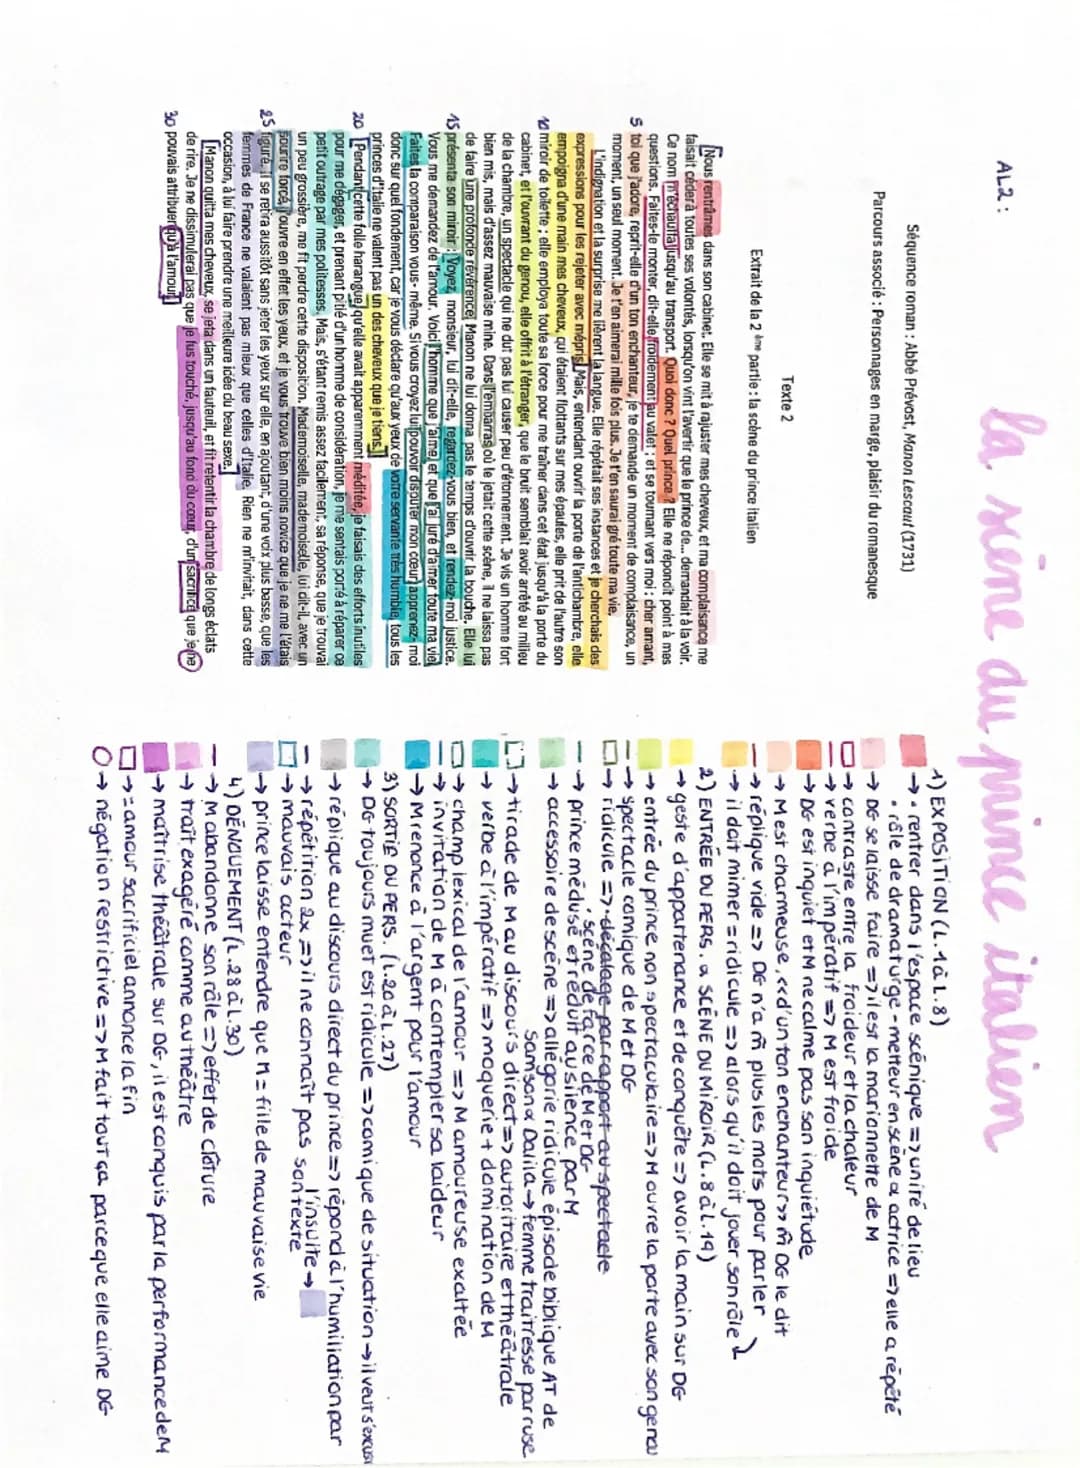 la scène du prince italien
AL2 :
Séquence roman : Abbé Prévost, Manon Lescaut (1731)
Parcours associé : Personnages en marge, plaisir du romanesque
Texte 2
Extrait de la 2 ème partie : la scène du prince italien
[Nous rentrâmes dans son cabinet. Elle se mit à rajuster mes cheveux, et ma complaisance me
faisait céder à toutes ses volontés, lorsqu'on vint l'avertir que le prince de... demandait à la voir.
Ce nom m'échauffa jusqu'au transport. Quoi donc ? Quel prince ? Elle ne répondit point à mes
questions. Faites-le monter, dit-elle froidement au valet ; et se tournant vers moi : cher amant,
5 toi que j'adore, reprit-elle d'un ton enchanteur, je te demande un moment de complaisance, un
moment, un seul moment. Je t'en aimerai mille fois plus. Je t'en saurai gré toute ma vie.
L'indignation et la surprise me lièrent la langue. Elle répétait ses instances et je cherchais des
expressions pour les rejeter avec mépris.] Mais, entendant ouvrir la porte de l'antichambre, elle
empoigna d'une main mes cheveux, qui étaient flottants sur mes épaules, elle prit de l'autre son
10 miroir de toilette ; elle employa toute sa force pour me traîner dans cet état jusqu'à la porte du
cabinet, et l'ouvrant du genou, elle offrit à l'étranger, que le bruit semblait avoir arrêté au milieu
de la chambre, un spectacle qui ne dut pas lui causer peu d'étonnement. Je vis un homme fort
bien mis, mais d'assez mauvaise mine. Dans l'embarras où le jetait cette scène, il ne laissa pas
de faire une profonde révérence. Manon ne lui donna pas le temps d'ouvrir la bouche. Elle lui
15 présenta son miroir : Voyez, monsieur, lui dit-elle, regardez-vous bien, et rendez-moi justice.
Vous me demandez de l'amour. Voici l'homme que j'aime, et que j'ai juré d'aimer toute ma vie.
Faites la comparaison vous-même. Si vous croyez lui pouvoir disputer mon cœur, apprenez-moi
donc sur quel fondement, car je vous déclare qu'aux yeux de votre servante très humble, tous les
princes d'Italie ne valent pas un des cheveux que je tiens.]
20 [Pendant cette folle harangue, qu'elle avait apparemment méditée, je faisais des efforts inutiles
pour me dégager, et prenant pitié d'un homme de considération, je me sentais porté à réparer ce
petit outrage par mes politesses. Mais, s'étant remis assez facilement, sa réponse, que je trouvai
un peu grossière, me fit perdre cette disposition. Mademoiselle, mademoiselle, lui dit-il, avec un
sourire forcé, j'ouvre en effet les yeux, et je vous trouve bien moins novice que je ne me l'étais
25 figuré. Il se retira aussitôt sans jeter les yeux sur elle, en ajoutant, d'une voix plus basse, que les
femmes de France ne valaient pas mieux que celles d'Italie. Rien ne m'invitait, dans cette
occasion, à lui faire prendre une meilleure idée du beau sexe.]
[Manon quitta mes cheveux, se jeta dans un fauteuil, et fit retentir la chambre de longs éclats
de rire. Je ne dissimulerai pas que je fus touché, jusqu'au fond du cœur, d'un sacrifice que je ne
30 pouvais attribuer qu'à l'amour.]
1) EXPOSITION (L.1 à L.8)
→ • rentrer dans l'espace scénique => unité de lieu
• rôle de dramaturge-metteur en scène & actrice => elle a répété
→ DG se laisse faire => il est la marionnette de M
→ contraste entre la froideur et la chaleur
→ verbe à l'impératif => M est froide
→ DG est inquiet et M ne calme pas son inquiétude
→ M est charmeuse, <<d'un ton enchanteur>> m̂ DG le dit
→ réplique vide => DG n'a m̂ plus les mots pour parler
→ il doit mimer = ridicule => alors qu'il doit jouer son rôle
2) ENTRÉE DU PERS. & SCÈNE DU MIROIR (L.8 à L.19)
→ geste d'appartenance et de conquête => avoir la main sur DG
→ entrée du prince non spectaculaire => M ouvre la porte avec son genou
→ spectacle comique de M et DG
→ ridicule => • décalage par rapport au spectacle
• scène de farce de M et DG
→ prince médusé et réduit au silence par M
→ accessoire de scène => allégorie ridicule épisode biblique AT de
Samson & Dalila → femme traitresse par ruse
→ tirade de M au discours direct => autoritaire et théâtrale
→ verbe à l'impératif => moquerie + domination de M
→ champ lexical de l'amour => M amoureuse exaltée
→ invitation de M à contempler sa laideur
→ M renonce à l'argent pour l'amour
3) SORTIE DU PERS. (L.20 à L.27)
→ DG toujours muet est ridicule => comique de situation → il veut s'excus
→ réplique au discours direct du prince => répond à l'humiliation par
l'insulte →
→ répétition 2x => il ne connaît pas son texte
→ mauvais acteur
→ prince laisse entendre que M = fille de mauvaise vie
4) DÉNOUEMENT (L.28 à L.30)
→ M abandonne son rôle => effet de clôture
→ trait exagéré comme au théâtre
→ maîtrise théâtrale sur DG, il est conquis par la performance de M
→ = amour sacrificiel annonce la fin
→ négation restrictive => M fait tout ça parce que elle aime DG